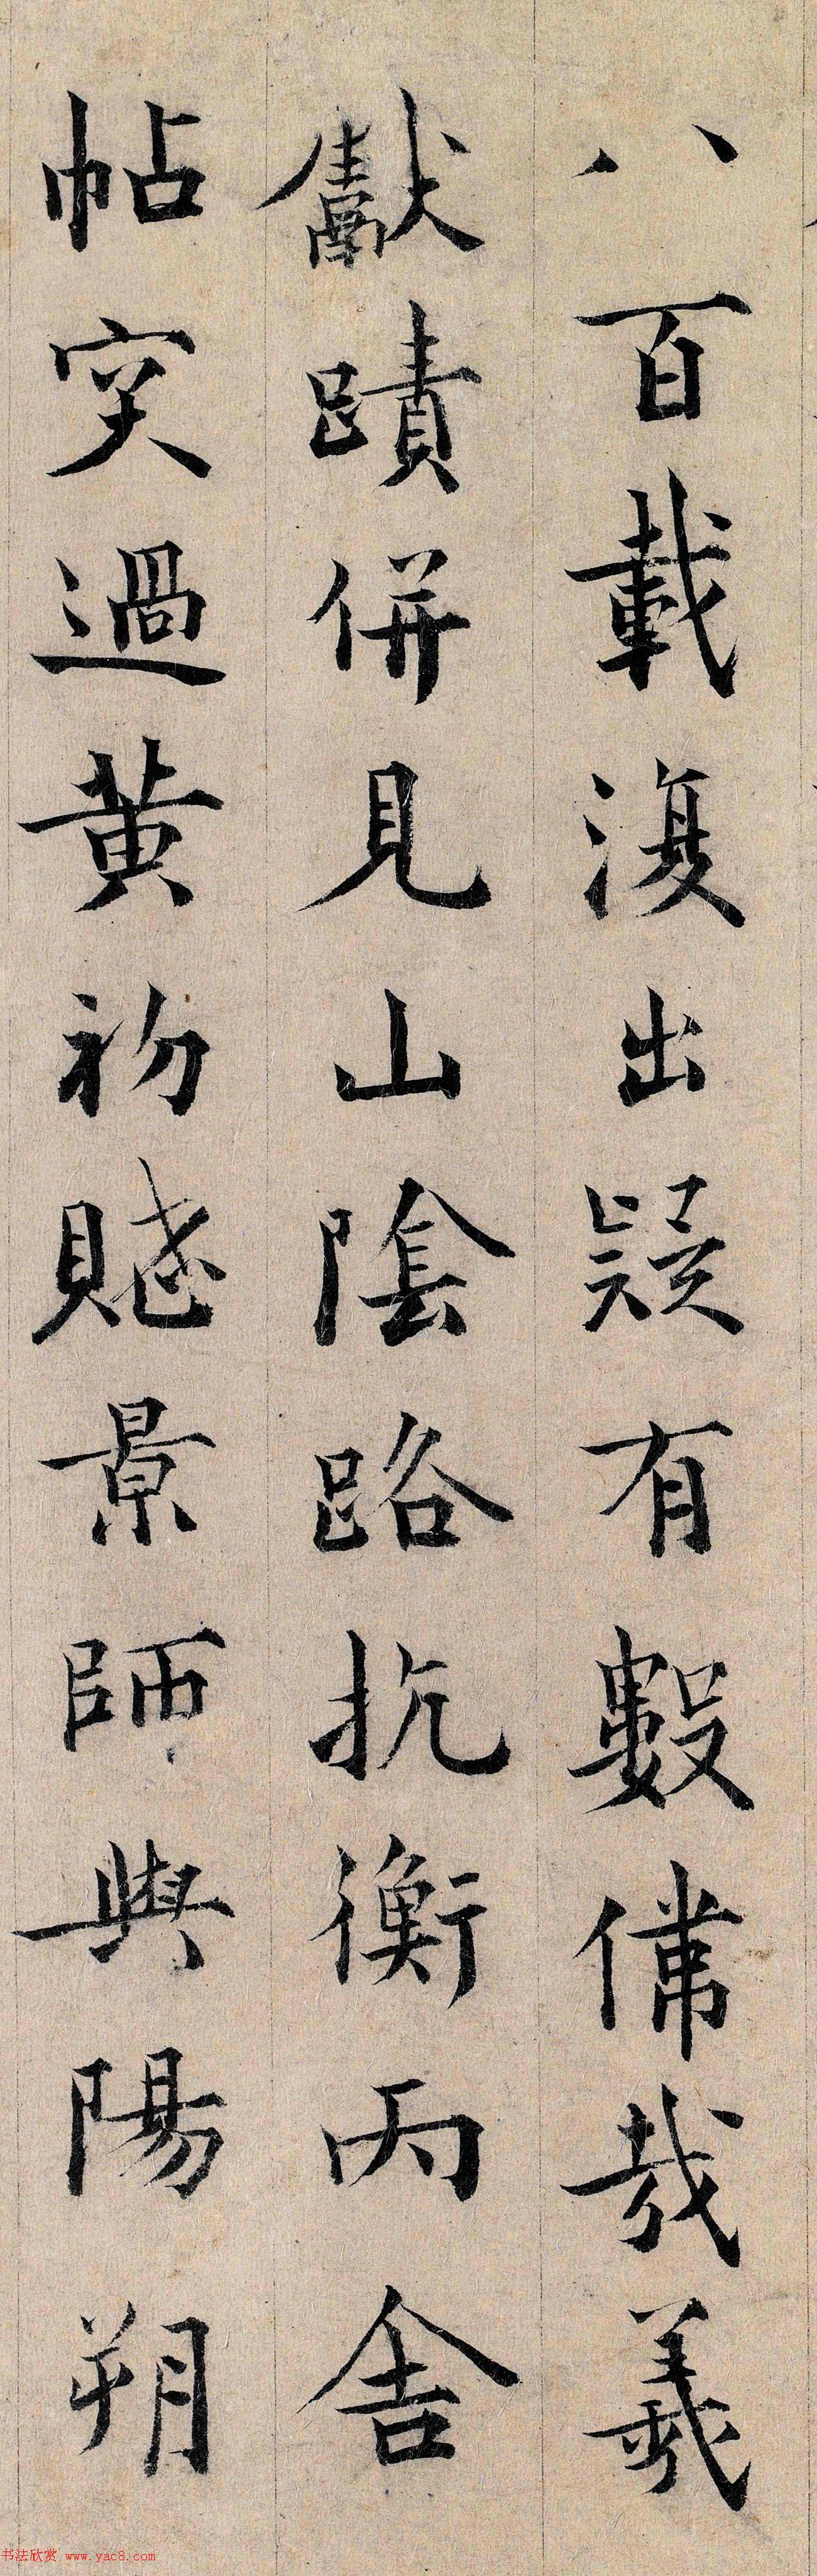 八百載復出疑有數偉哉羲
獻蹟併見山陰路抗衡丙舍
帖突過黄初賤景師與陽朔
书法欣赏 www.yac8.com